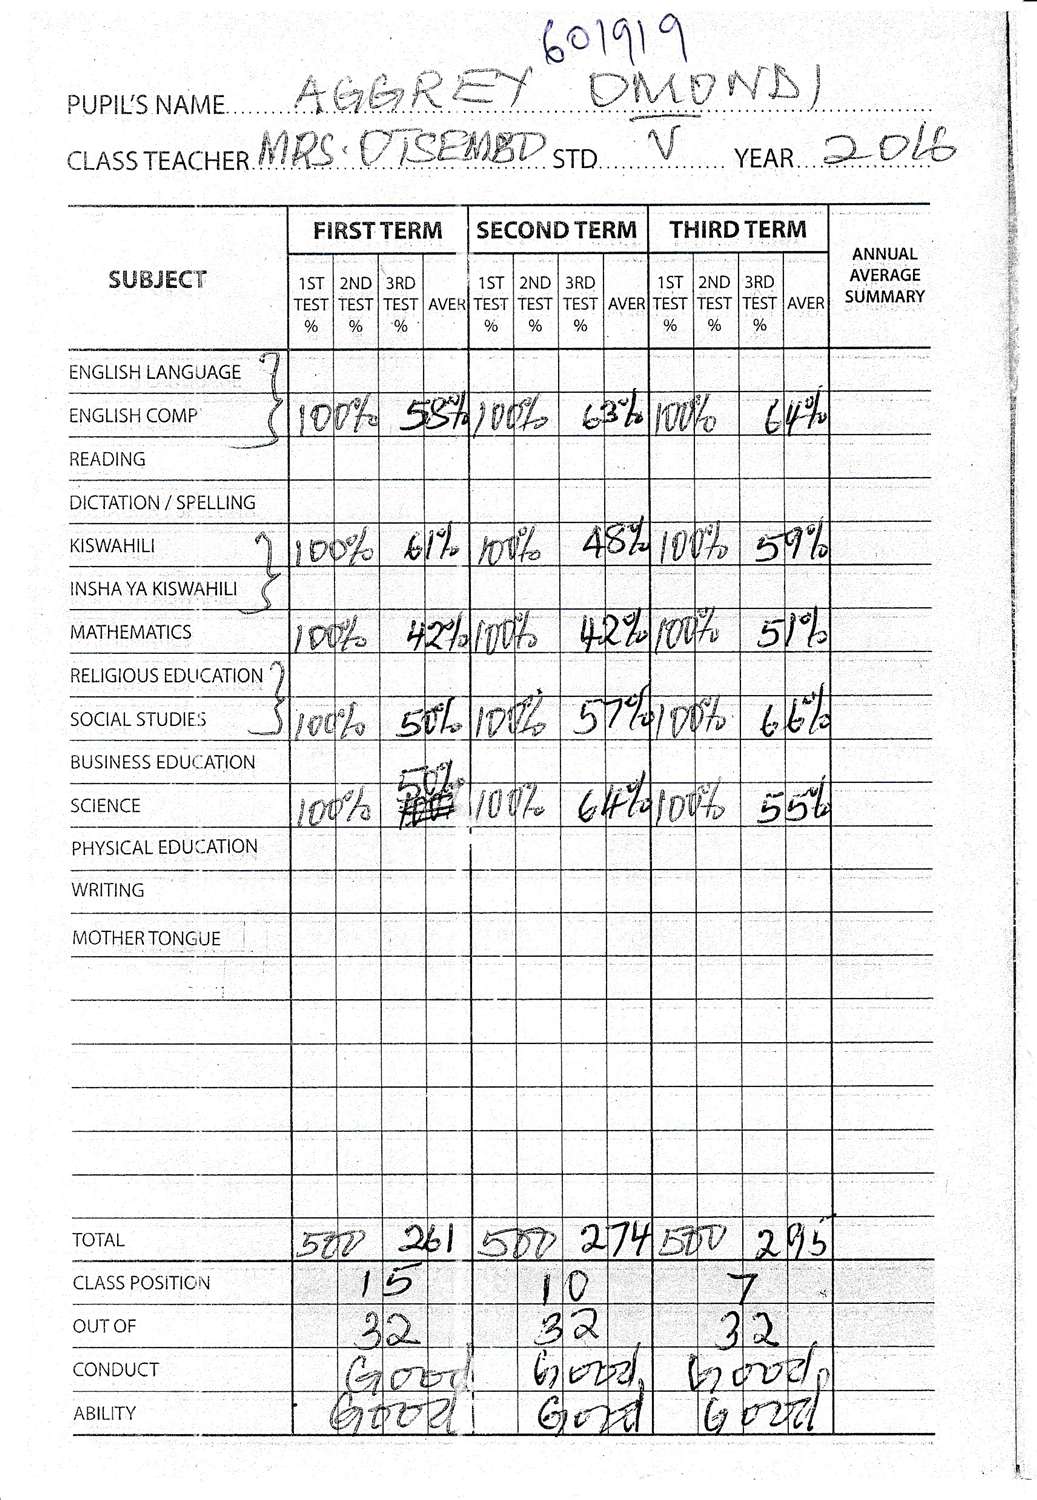 601919
PUPIL'S NAME AGGREY OMONDI
CLASS TEACHER MRS. OTSEMBO STD V YEAR 2016
SUBJECT FIRST TERM SECOND TERM THIRD TERM ANNUAL AVERAGE SUMMARY
1ST TEST % 2ND TEST % 3RD TEST % AVER 1ST TEST % 2ND TEST % 3RD TEST % AVER 1ST TEST % 2ND TEST % 3RD TEST % AVER
ENGLISH LANGUAGE
ENGLISH COMP 100% 58% 100% 63% 100% 64%
READING
DICTATION / SPELLING
KISWAHILI 100% 61% 100% 48% 100% 59%
INSHA YA KISWAHILI
MATHEMATICS 100% 42% 100% 42% 100% 51%
RELIGIOUS EDUCATION
SOCIAL STUDIES 100% 50% 100% 57% 100% 66%
BUSINESS EDUCATION
SCIENCE 100% 50% 100% 64% 100% 55%
PHYSICAL EDUCATION
WRITING
MOTHER TONGUE
TOTAL 500 261 500 274 500 295
CLASS POSITION 15 10 7
OUT OF 32 32 32
CONDUCT Good Good. Good.
ABILITY Good Good Good